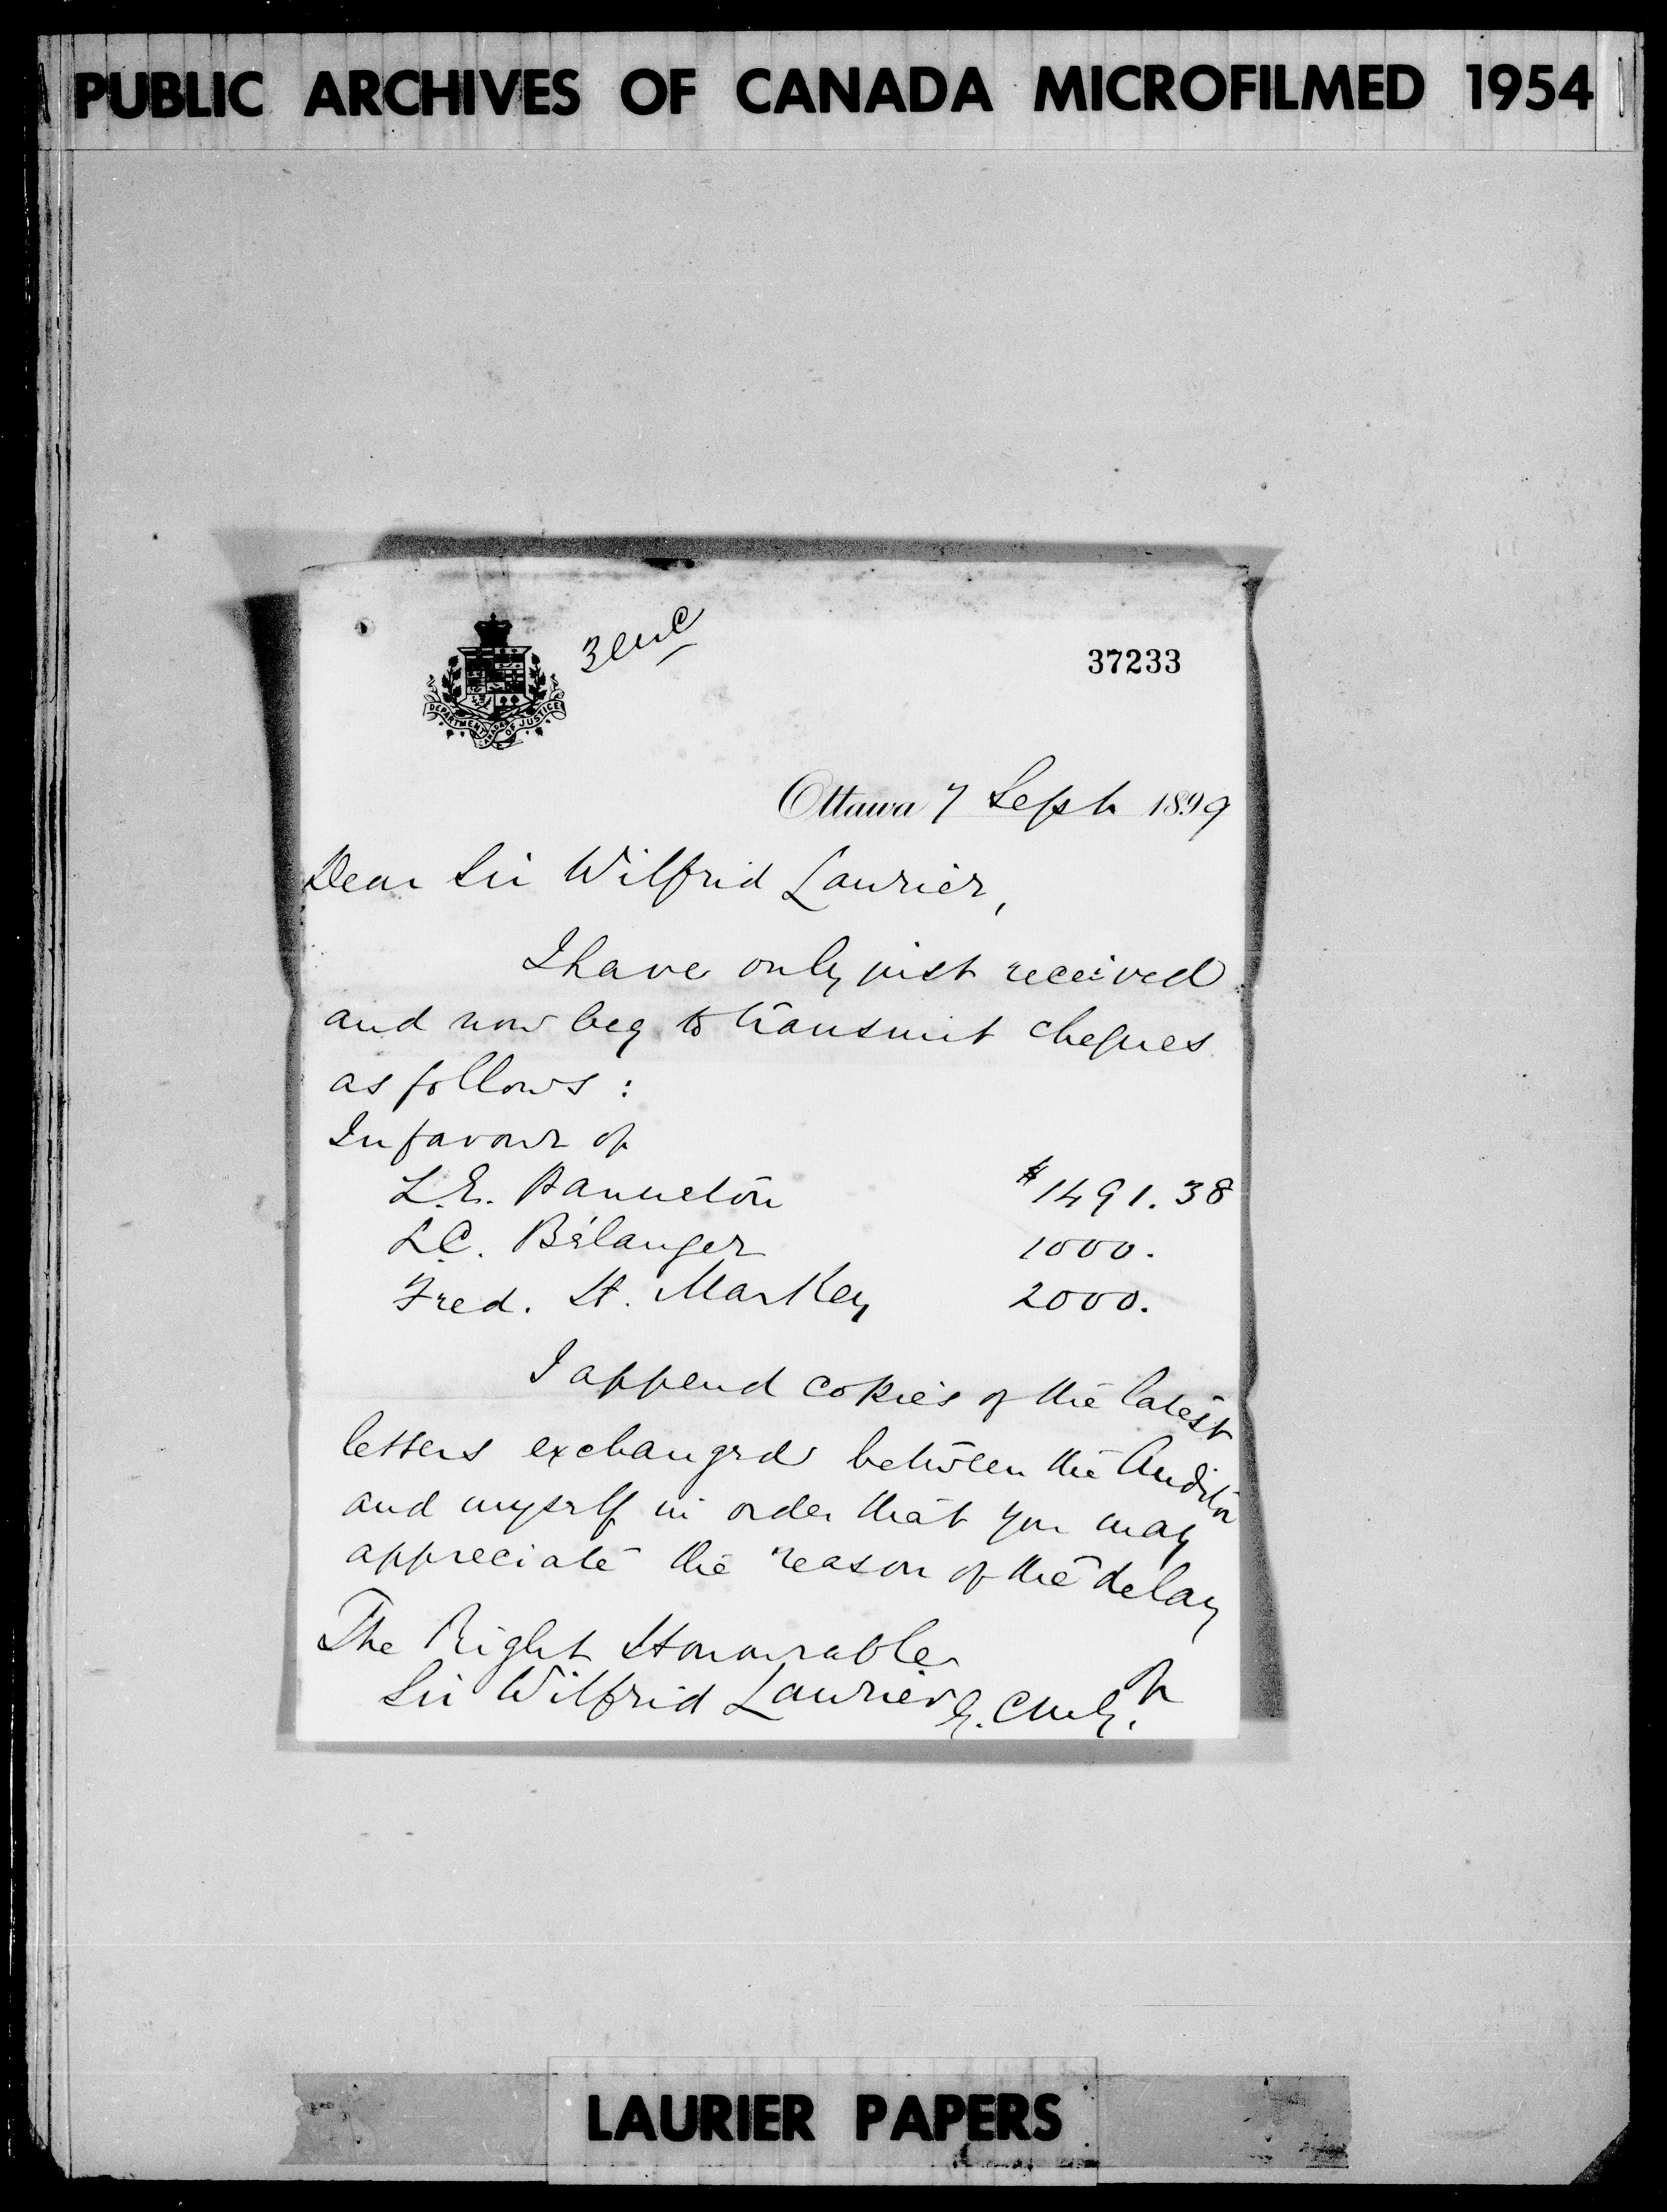 PUBLIC ARCHIVES OF CANADA MICROFILMED 1954
3 enc
37233
DEPARTMENT OF JUSTICE
CANADA
Ottawa 7 Sept 1899
Dear Sir Wilfrid Laurier,
I have only just received
and now beg to transmit cheques
as follows:
In favour of
L.E. Panneton $1491.38
L.C. Bélanger 1000.
Fred. H. Markey 2000.
I append copies of the latest
letters exchanged between the Auditor
and myself in order that you may
appreciate the reason of the delay
The Right Honourable
Sir Wilfrid Laurier G.C.M.G.
LAURIER PAPERS